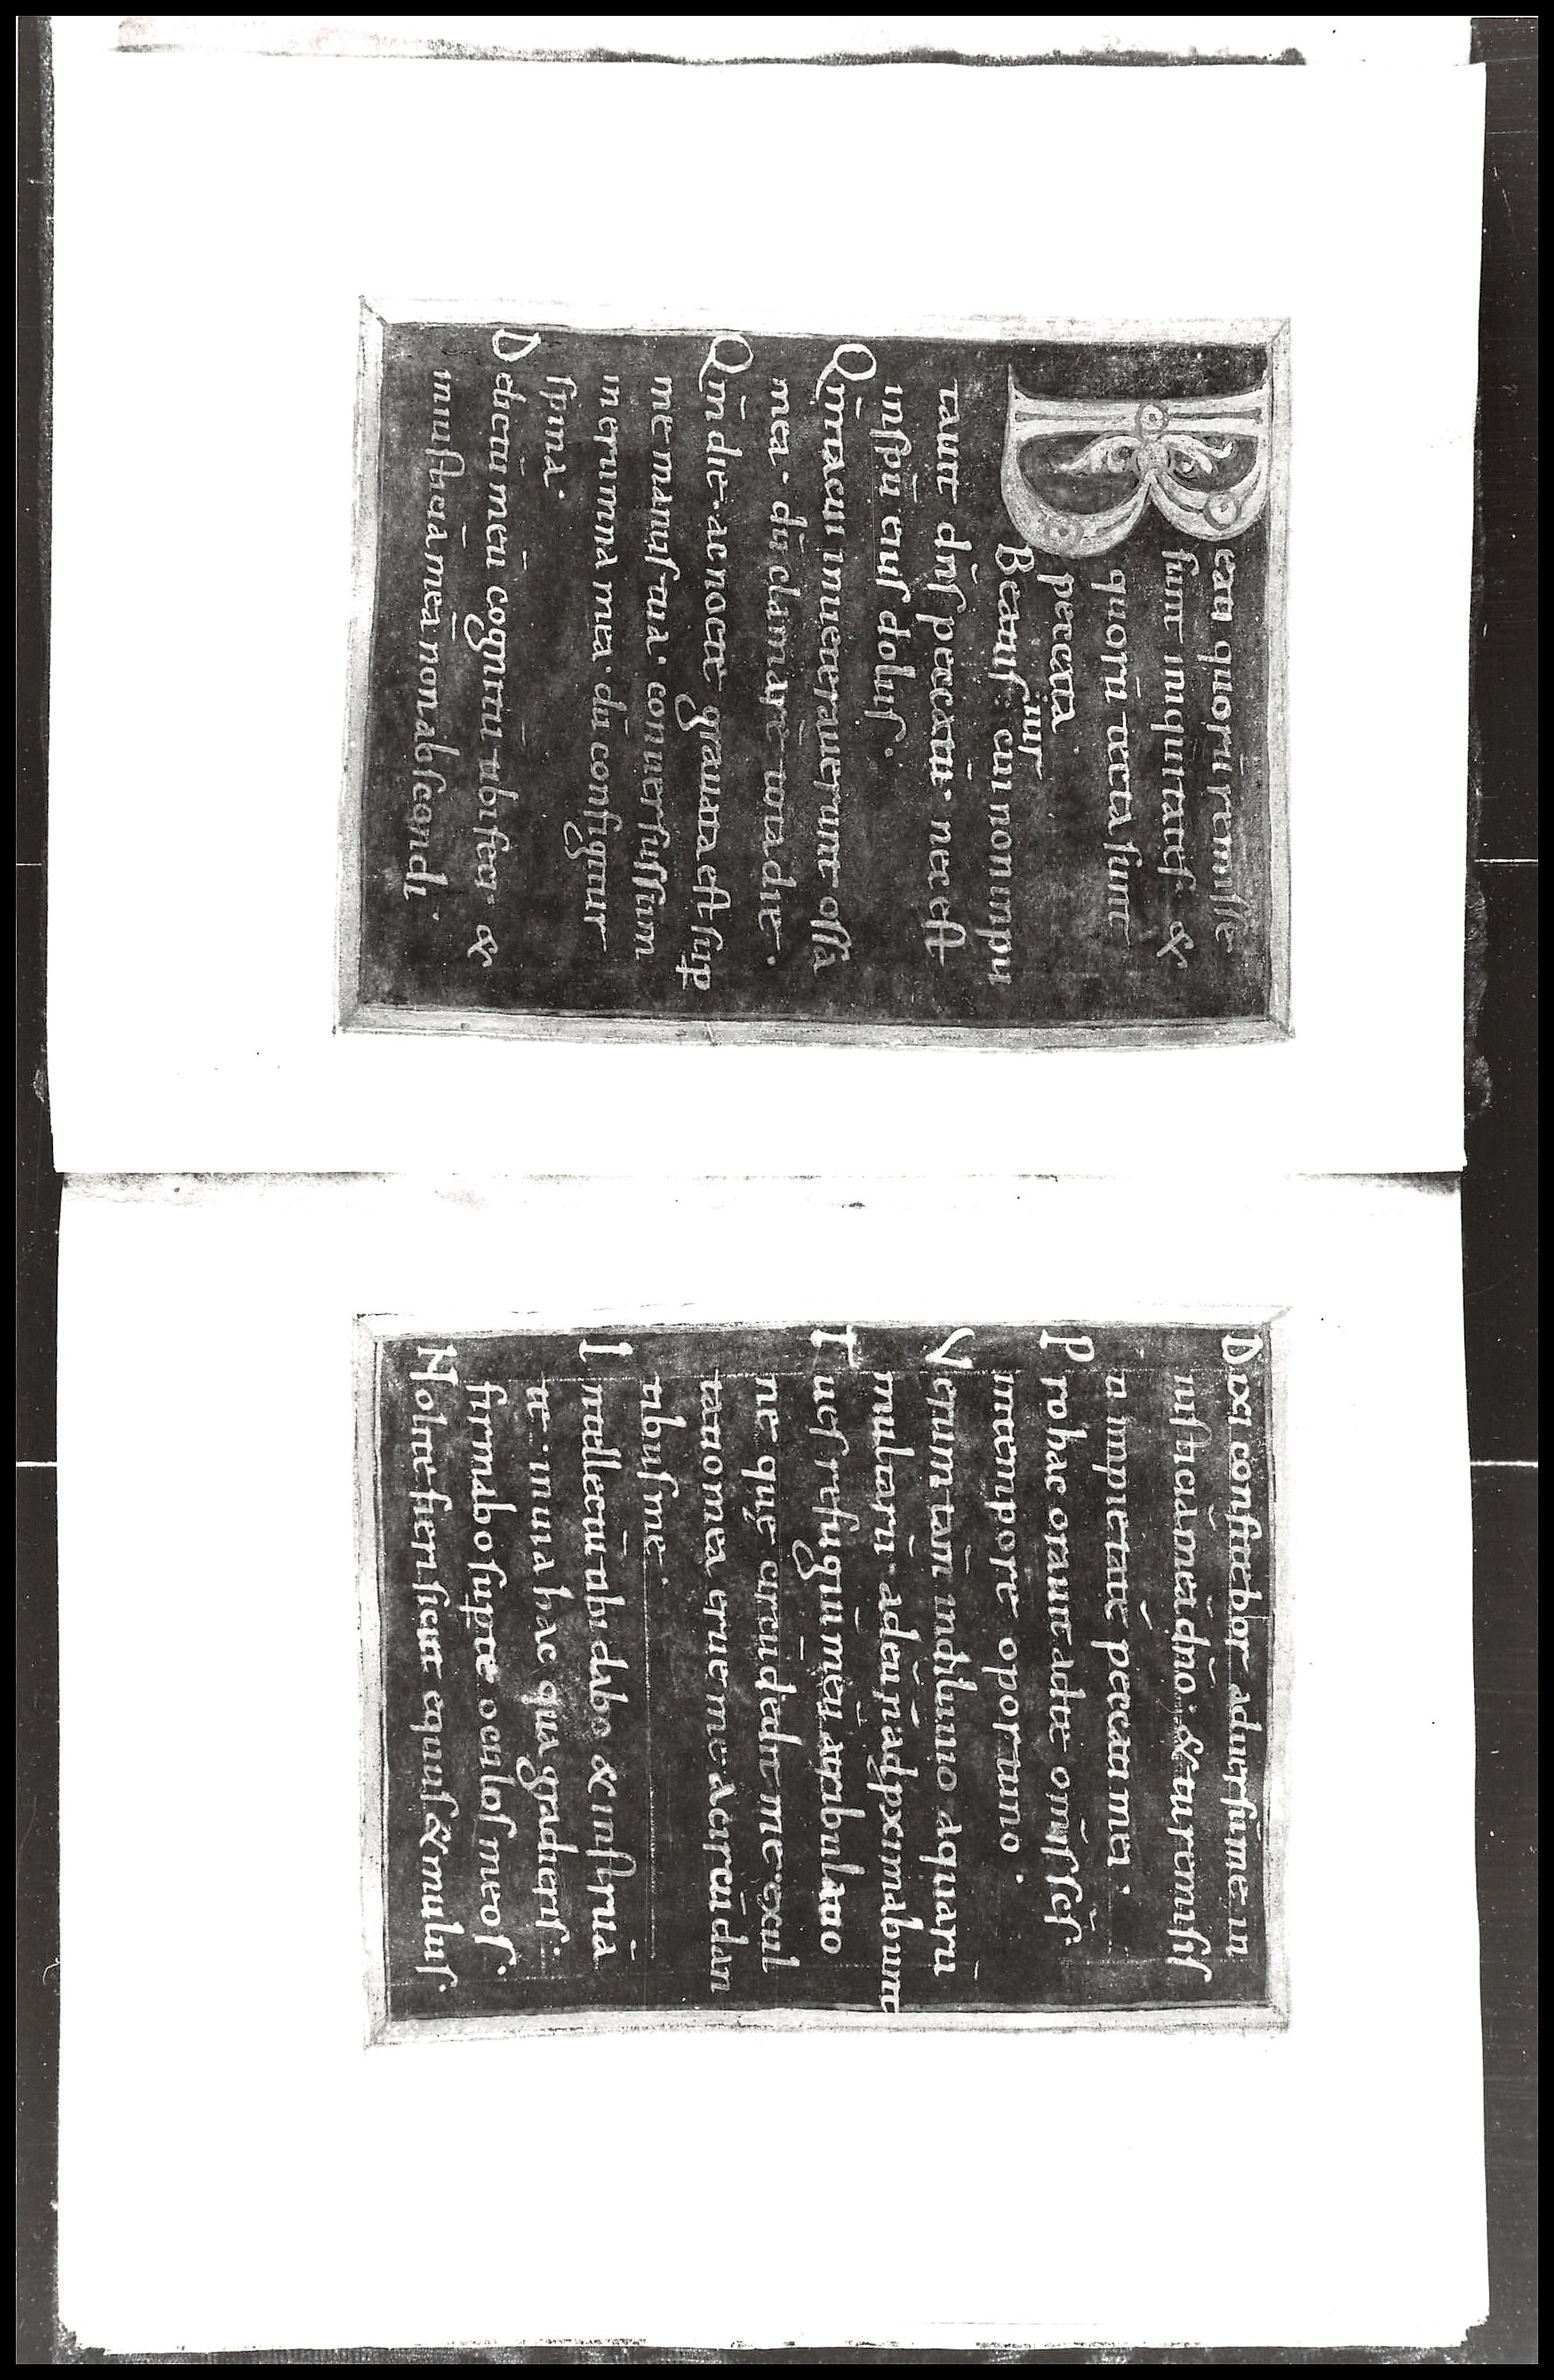 Beati quorū remisse
sunt iniquitates· &
quorū tecta sunt
peccata·
Beatus uir cui non inpu
tauit dn̄s peccatū· nec est
in sp̄u eius dolus·
Qm̄ tacui inueterauerunt ossa
mea· dū clamarē tota die·
Qm̄ die· ac nocte grauata est sup
me manus tua· conuersus sum
in erumna mea· dū configitur
spina·
Delictū meū cognitū tibi feci· &
iniusticiā meā non abscondi·
Dixi confitebor aduersū me in
iusticiā meā dn̄o· & tu remisis
ti impietatē peccati mei·
Pro hac orauit ad te om̄is sc̄s·
in tempore oportuno·
Verum tam̄ in diluuio aquarū
multarū· ad eū n̄ adpximabunt
Tu es refugiū meū a tribulatio
ne que circūdedit me· exul
tatio mea erue me a circūdan
tibus me·
Intellectū tibi dabo & instruā
te· in uia hac qua gradieris·
firmabo supe te oculos meos·
Nolite fieri sicut equus & mulus·